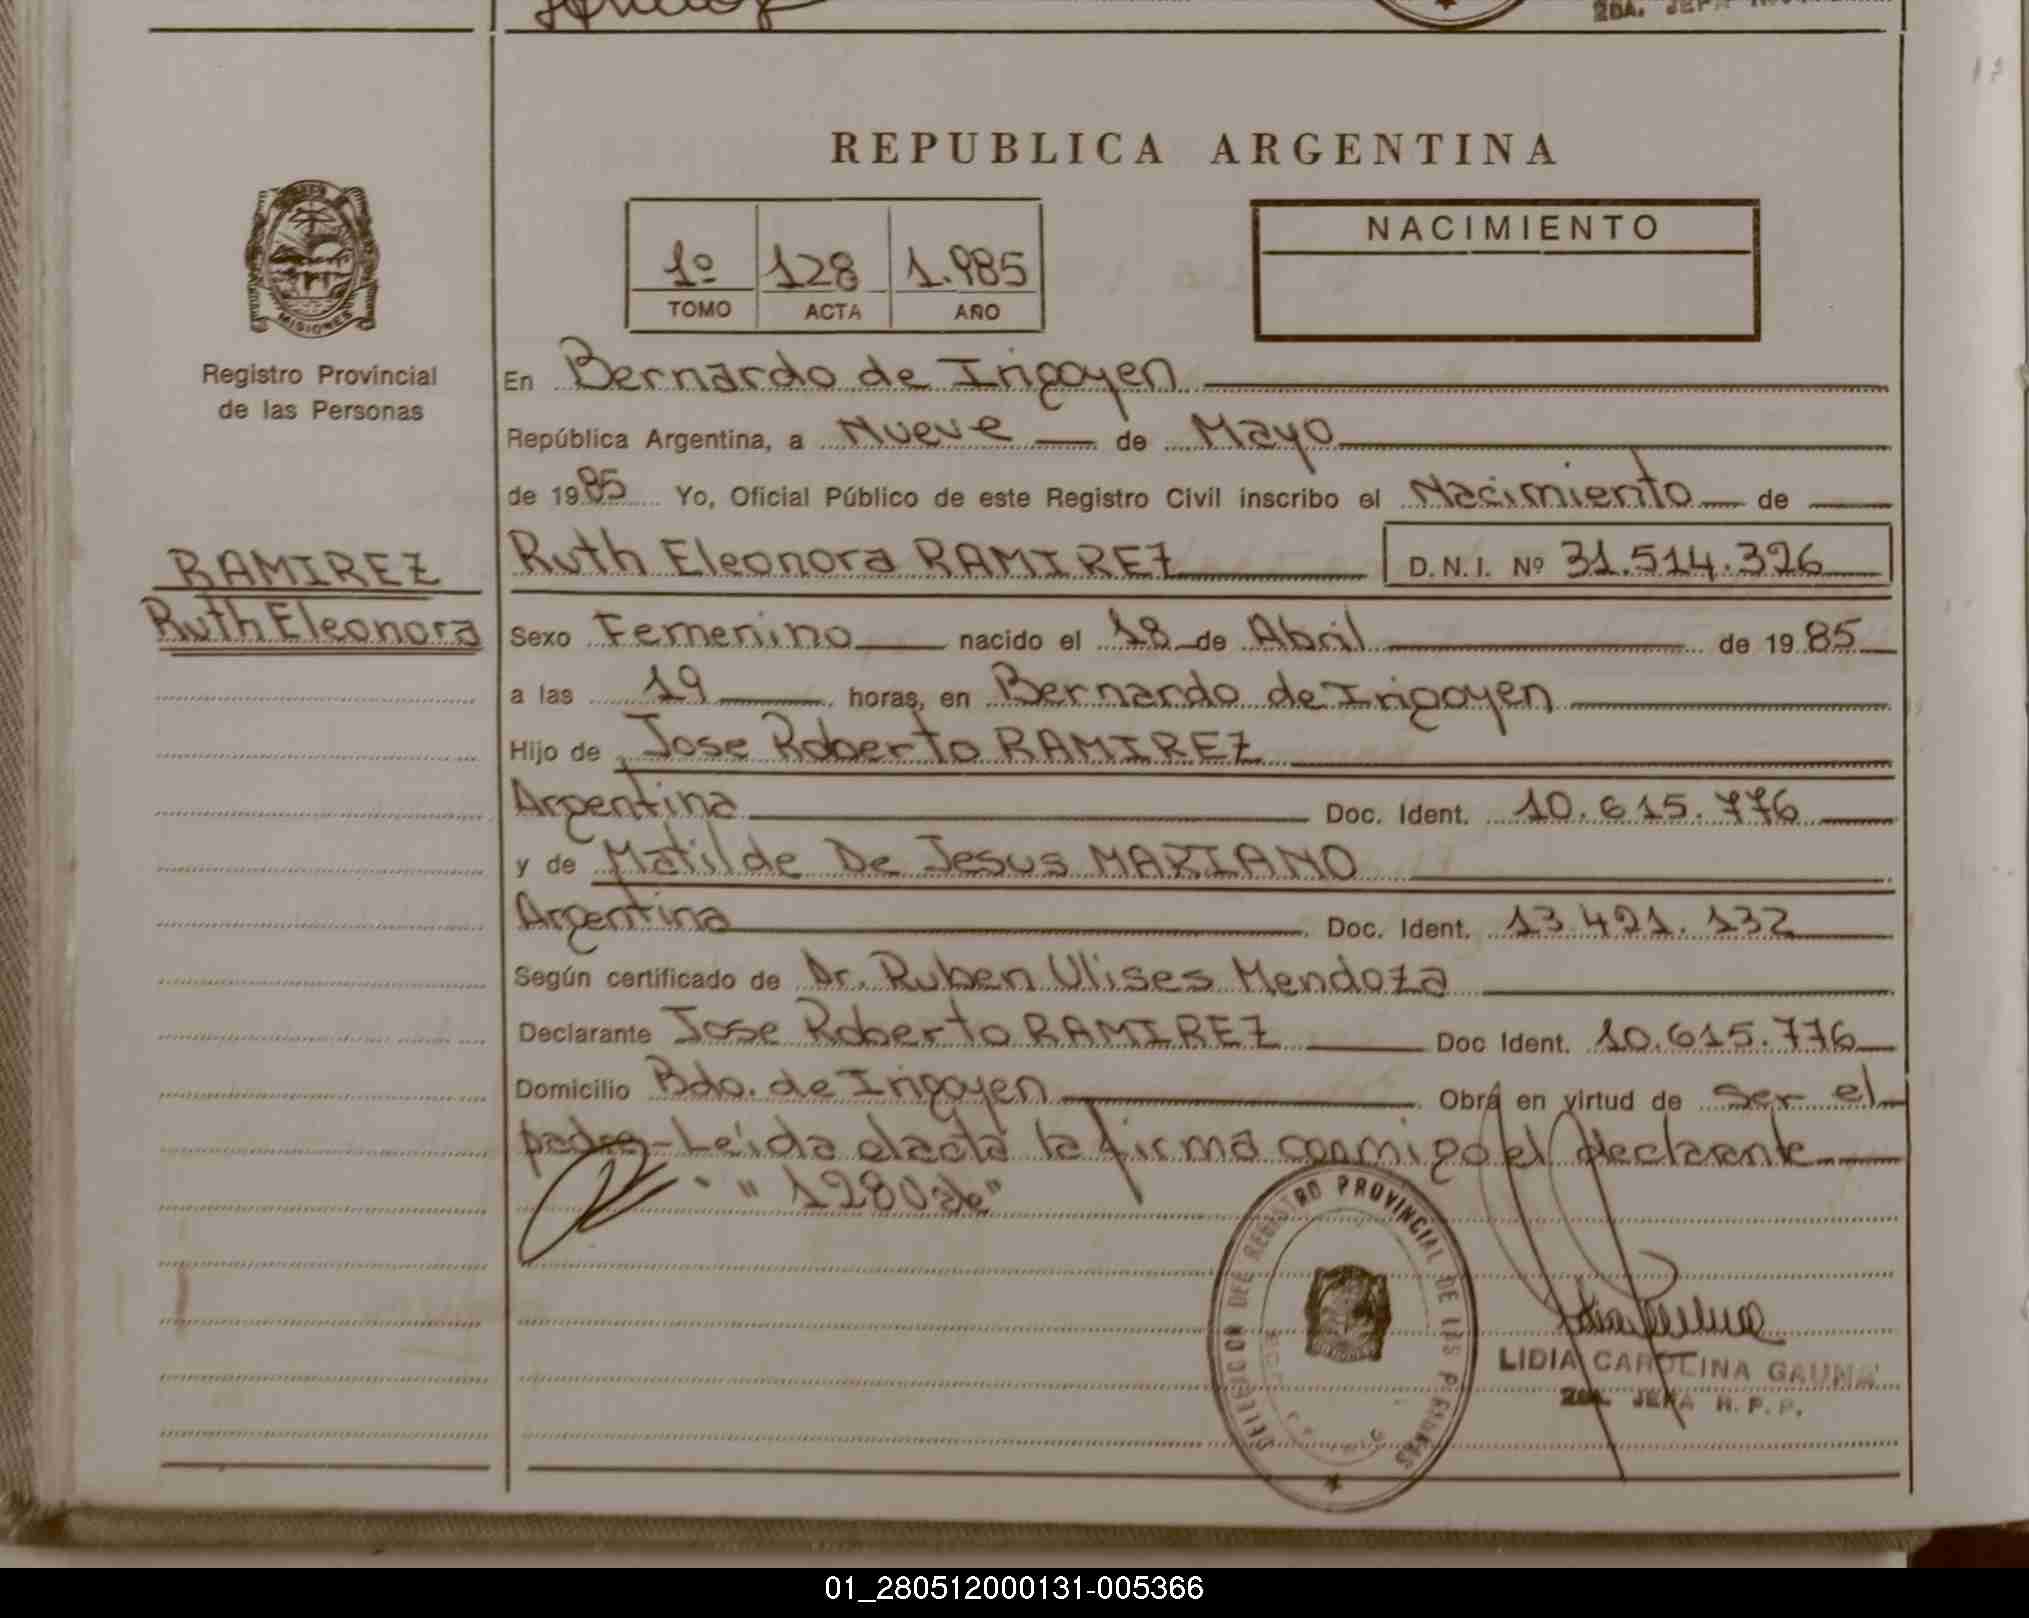 2DA. JEFA
REPUBLICA ARGENTINA
1º 128 1.985
TOMO ACTA AÑO
NACIMIENTO
MISIONES
Registro Provincial
de las Personas
En Bernardo de Irigoyen
República Argentina, a Nueve de Mayo
de 1985 Yo, Oficial Público de este Registro Civil inscribo el Nacimiento de
RAMIREZ
Ruth Eleonora
Ruth Eleonora RAMIREZ D.N.I. Nº 31.514.326
Sexo Femenino nacido el 18 de Abril de 1985
a las 19 horas, en Bernardo de Irigoyen
Hijo de Jose Roberto RAMIREZ
Argentina Doc. Ident. 10.615.776
y de Matilde De Jesus MARIANO
Argentina Doc. Ident. 13.421.132
Según certificado de Dr. Ruben Ulises Mendoza
Declarante Jose Roberto RAMIREZ Doc Ident. 10.615.776
Domicilio Bdo. de Irigoyen Obra en virtud de ser el
padre-Leída el acta la firma conmigo el declarante
DEL REGISTRO PROVINCIAL DE LAS PERSONAS
LIDIA CAROLINA GAUNA
2DA. JEFA R.P.P.
01_280512000131-005366